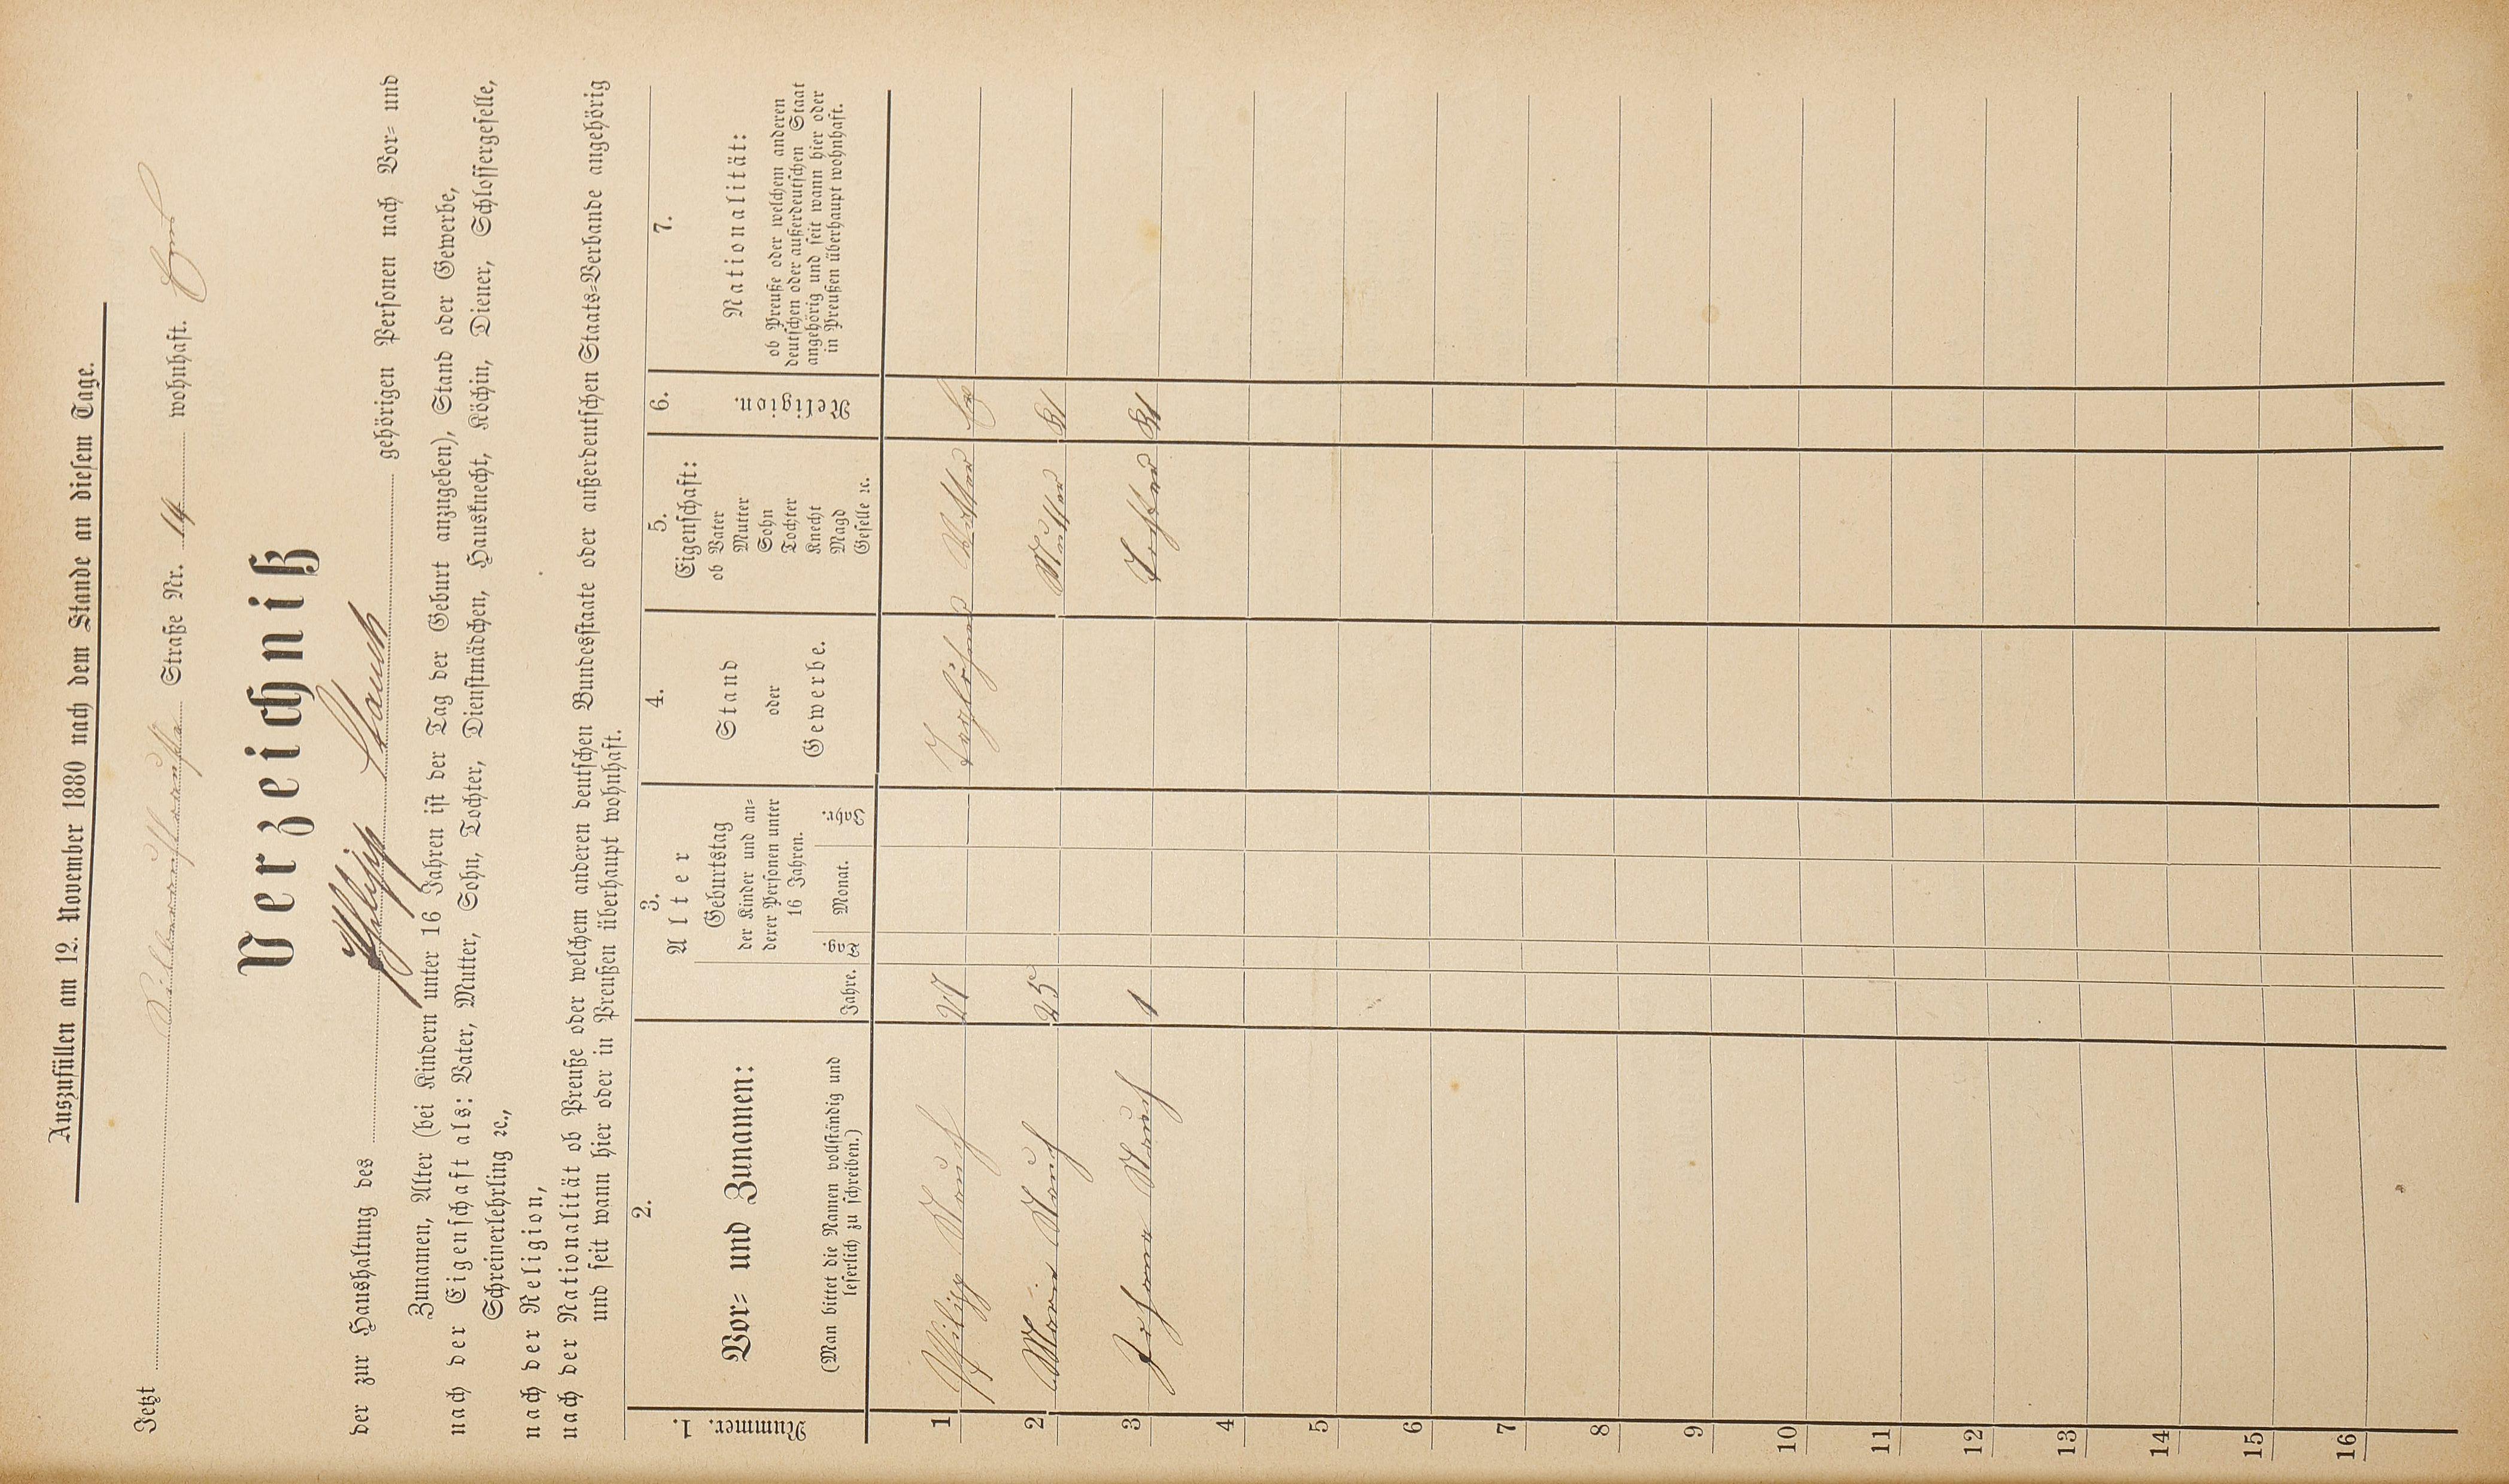 Auszufüllen am 12. November 1880 nach dem Stande an diesem Tage.
Jetzt Straße Nr. 14 wohnhaft.
Verzeichniß
der zur Haushaltung des Philipp Stauch gehörigen Personen nach Vor- und
Zunamen, Alter (bei Kindern unter 16 Jahren ist der Tag der Geburt anzugeben), Stand oder Gewerbe,
nach der Eigenschaft als: Vater, Mutter, Sohn, Tochter, Dienstmädchen, Hausknecht, Köchin, Diener, Schlossergeselle,
Schreinerlehrling ꝛc.,
nach der Religion,
nach der Nationalität ob Preuße oder welchem anderen deutschen Bundesstaate oder außerdeutschen Staats-Verbande angehörig
und seit wann hier oder in Preußen überhaupt wohnhaft.
1.
Nummer.
2.
Vor- und Zunamen:
(Man bittet die Namen vollständig und
leserlich zu schreiben.)
3.
Alter
Jahre.
Geburtstag
der Kinder und an-
derer Personen unter
16 Jahren.
Tag. Monat. Jahr.
4.
Stand
oder
Gewerbe.
5.
Eigenschaft:
ob Vater
Mutter
Sohn
Tochter
Knecht
Magd
Geselle ꝛc.
6.
Religion.
7.
Nationalität:
ob Preuße oder welchem anderen
deutschen oder außerdeutschen Staat
angehörig und seit wann hier oder
in Preußen überhaupt wohnhaft.
1 Philipp Stauch 27 Taglöhner Vatter
2 Maria Stauch 25 Mutter
3 Johana Stauch 1 Tochter
4
5
6
7
8
9
10
11
12
13
14
15
16